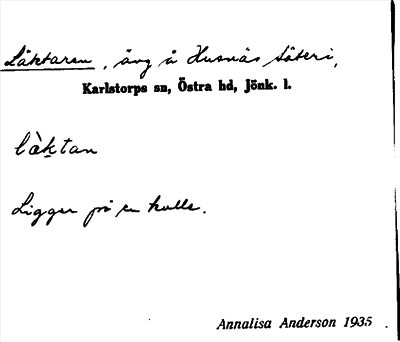 Läktaren, äng å Husnäs säteri,
Karlstorps sn, Östra hd, Jönk. l.
làktan
Ligger på en kulle.
Annalisa Anderson 1935.